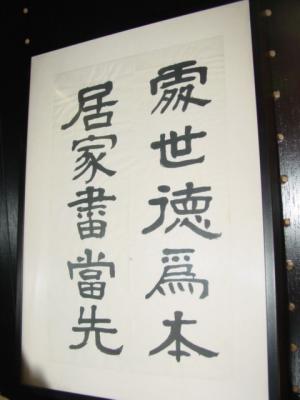 處世德為本
居家書當先